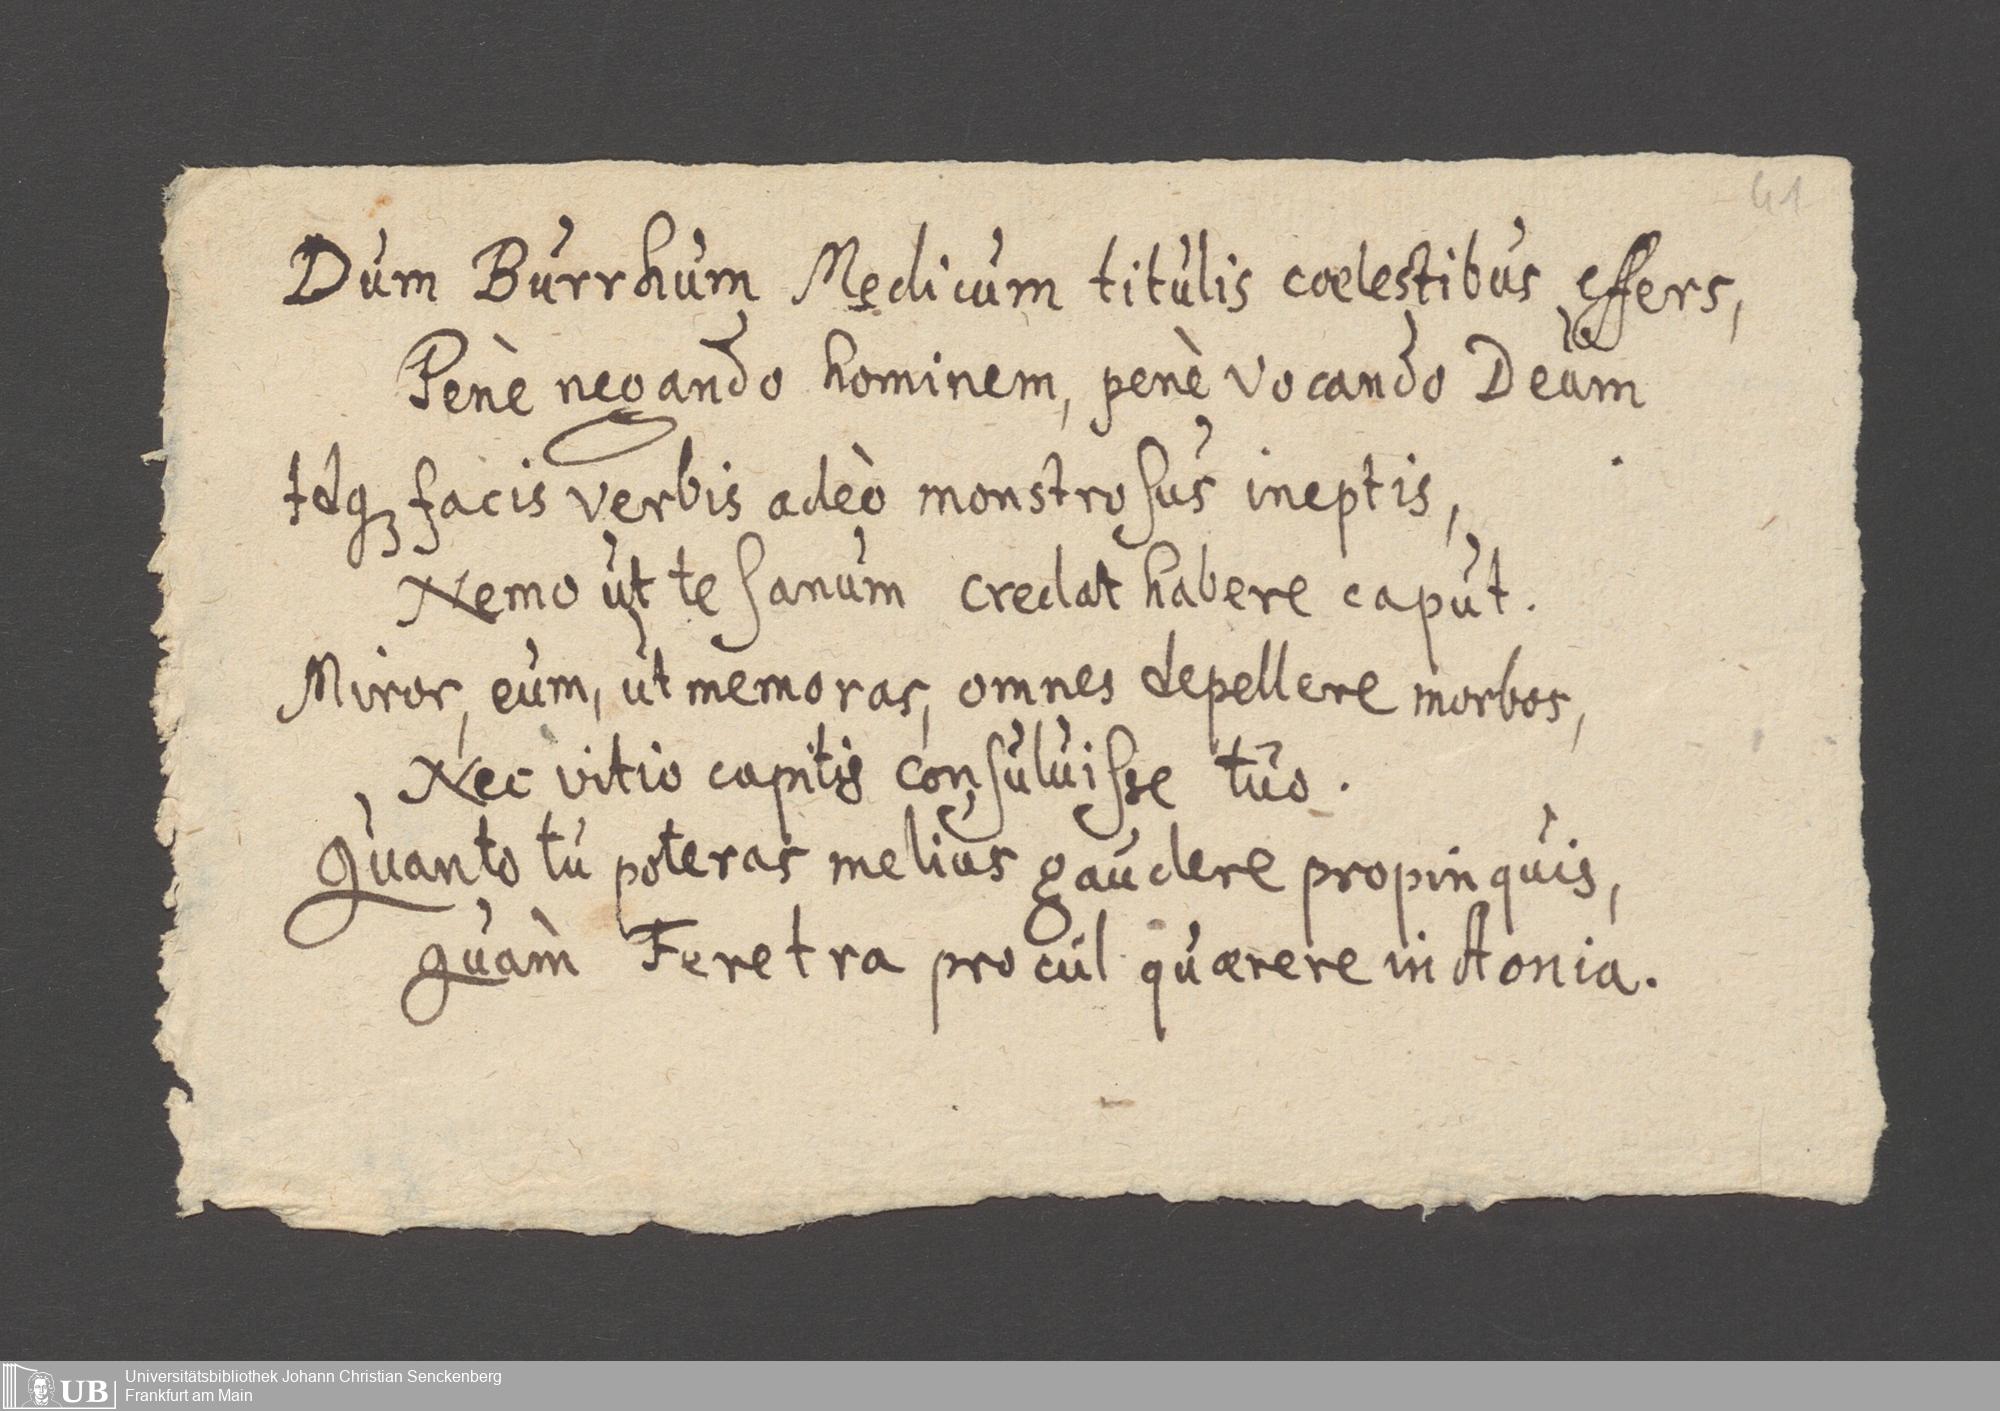 41
Dum Burrhum Medicum titulis coelestibus effers,
Penè negando hominem, penè vocando Deum
Idq3 facis verbis adeò monstrosus ineptis,
Nemo ut te sanum credat habere caput.
Miror, eum, ut memoras, omnes depellere morbos,
Nec vitio capitis consuluisse tuo.
Quanto tu poteras melius gaudere propinquis,
Quàm Feretra procul quærere in Aonia.
UB
Universitätsbibliothek Johann Christian Senckenberg
Frankfurt am Main